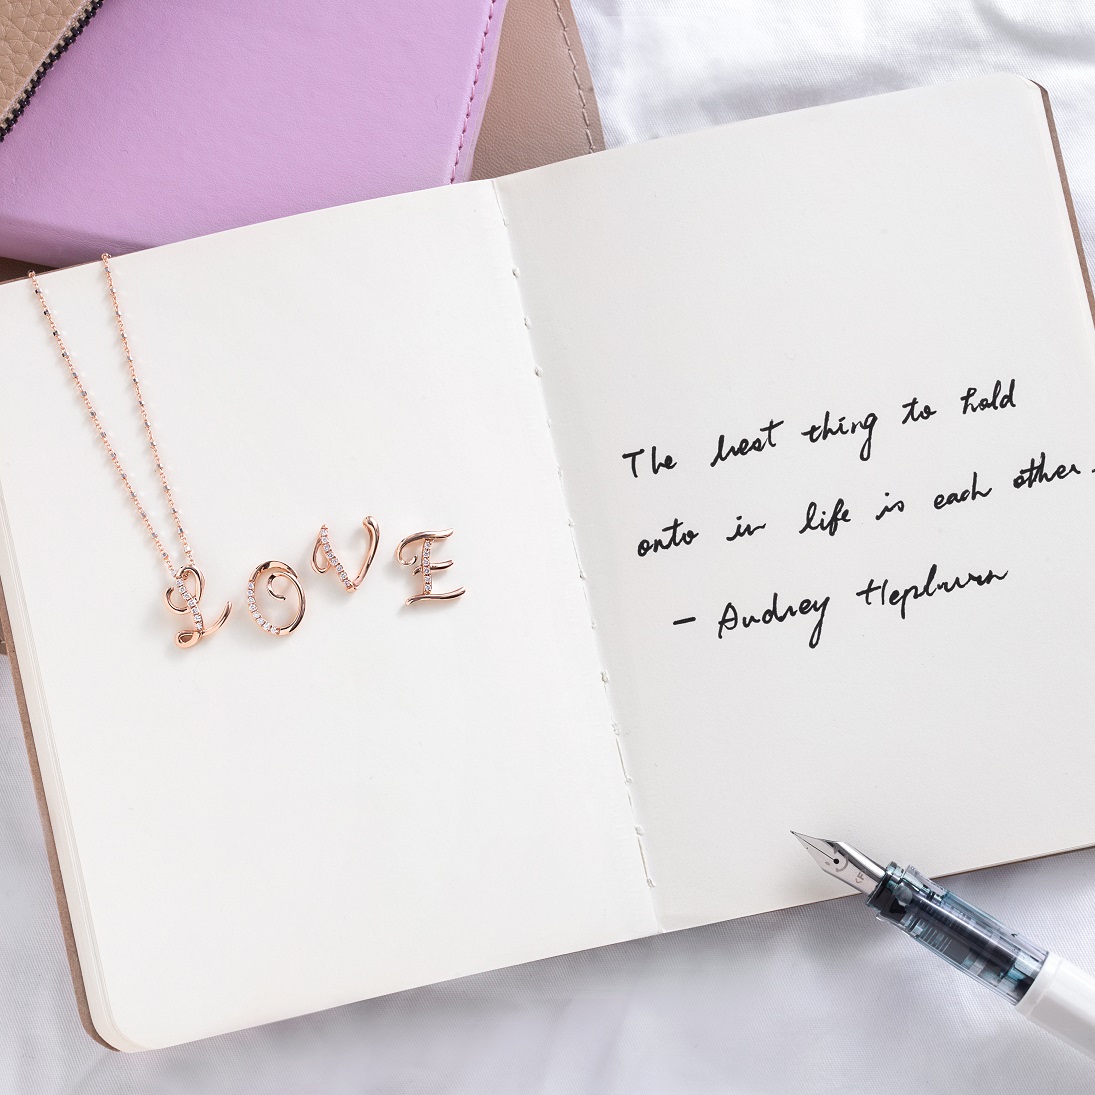 LOVE
The best thing to hold
onto in life is each other.
- Audrey Hepburn